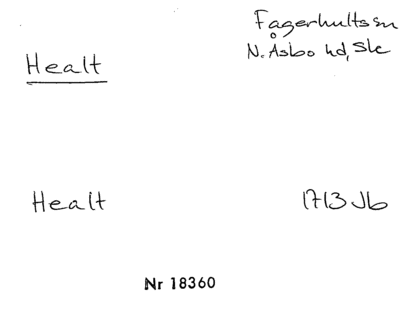 Fagerhults sn
N. Åsbo hd, Sk
Healt
Healt 1713 Jb
Nr 18360